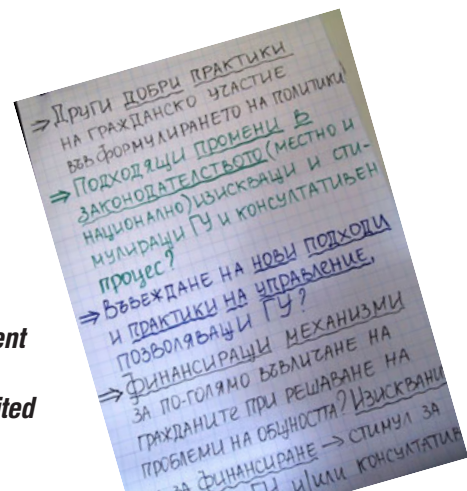 ⇒ Други добри практики
на гражданско участие
във формулирането на политики?
⇒ Подходящи промени в
законодателството (местно и
национално) изискващи и сти-
мулиращи ГУ и консултативен
процес?
⇒ Въвеждане на нови подходи
и практики на управление,
позволяващи ГУ?
⇒ Финансиращи механизми
за по-голямо въвличане на
гражданите при решаване на
проблеми на общността? Изисквани
за финансиране → стимул за
ГУ и/или консултатив
ent
ited